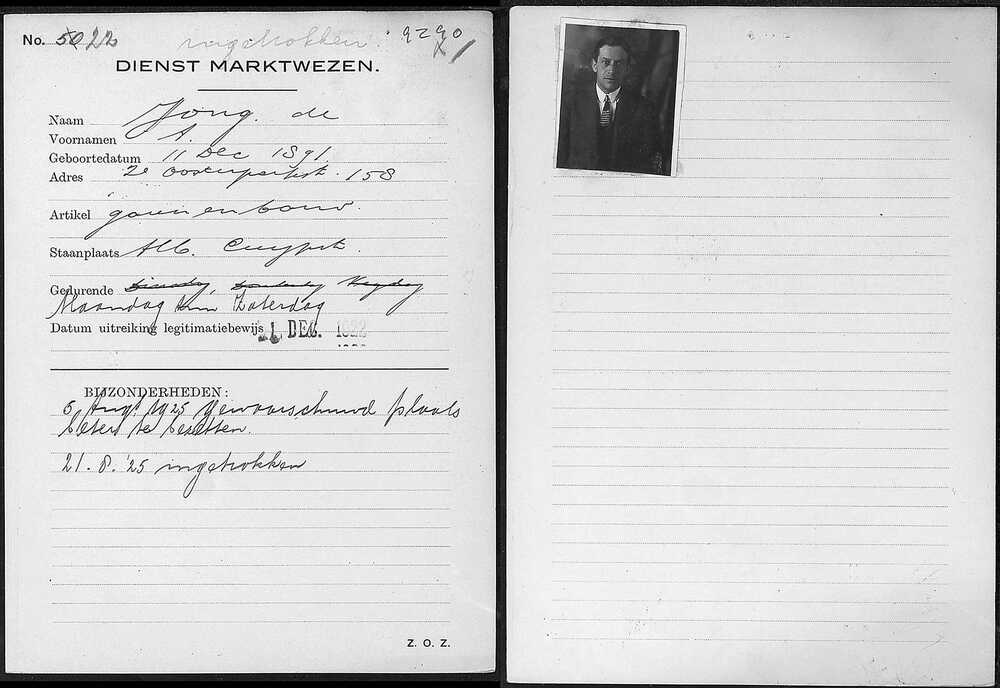 No. 5022 ingetrokken. 9290
X 1
DIENST MARKTWEZEN.
Naam Jong. de
Voornamen A.
Geboortedatum 11 Dec 1891.
Adres 2e Oosterparkst. 158
Artikel garen en band.
Staanplaats Alb. Cuypst.
Gedurende dinsdag, donderdag Vrydag
Maandag t/m Zaterdag
Datum uitreiking legitimatiebewijs 1 DEC. 1922
BIJZONDERHEDEN:
5 Aug. 1925 gewaarschuwd plaats
beter te bezetten.
21. 8. '25 ingetrokken
Z. O. Z.